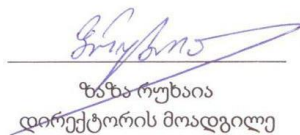 ზაზა რუხაია
დირექტორის მოადგილე